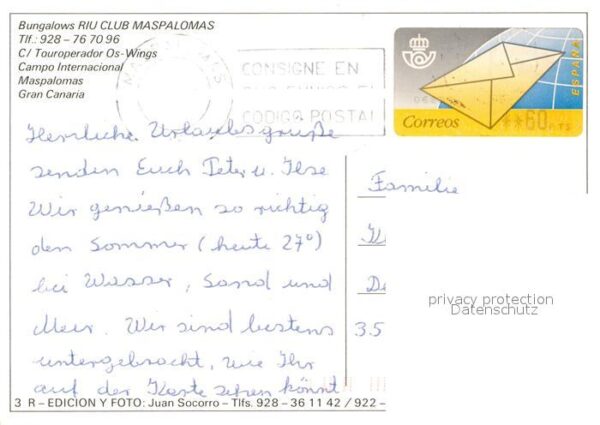 Bungalows RIU CLUB MASPALOMAS
Tlf.: 928 – 76 70 96
C/ Touroperador Os-Wings
Campo Internacional
Maspalomas
Gran Canaria
CONSIGNE EN
CODIGO POSTAL
ESPAÑA
Correos
**60 PTS
Herrliche Urlaubsgrüße
senden Euch Peter u. Ilse
Wir genießen so richtig
den Sommer (heute 27°)
bei Wasser, Sand und
Meer. Wir sind bestens
untergebracht, wie Ihr
auf der Karte sehen könnt
Familie
35
privacy protection
Datenschutz
3 R – EDICION Y FOTO: Juan Socorro – Tlfs. 928 – 36 11 42 / 922 –